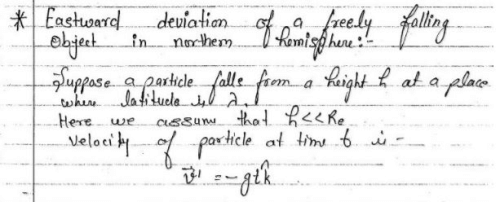 * Eastward deviation of a freely falling
object in northern hemisphere:-
→ Suppose a particle falls from a height h at a place
where latitude is λ.
Here we assume that h<<Re
Velocity of particle at time t is -
v⃗' = -gtk̂